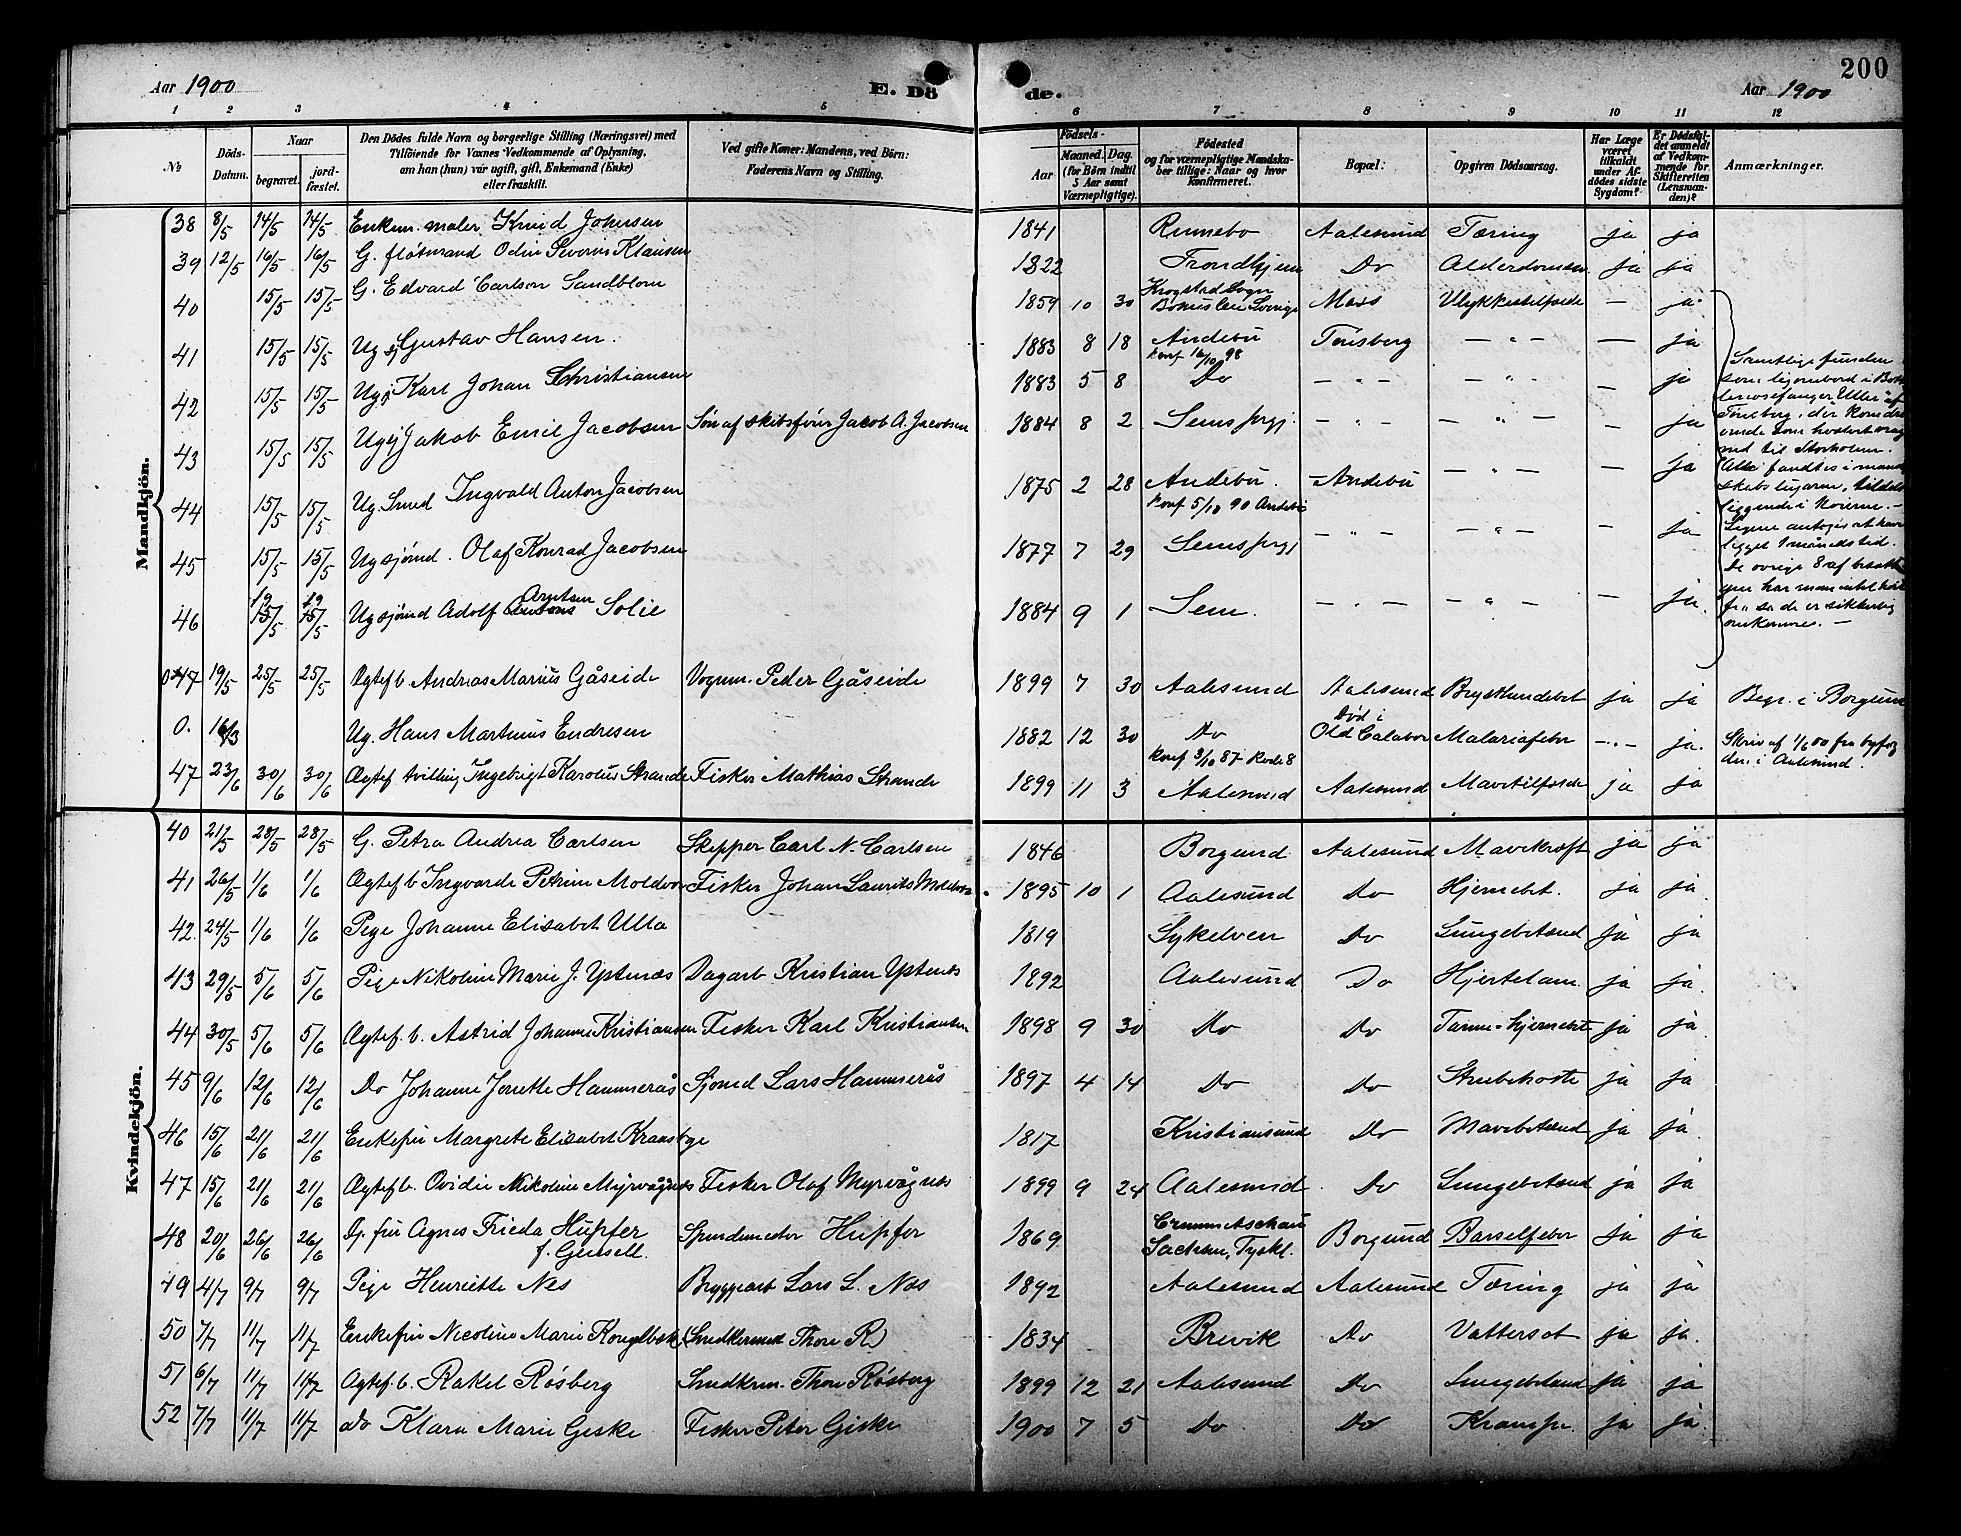 Aar 1900 E. Dö de. Aar 1900 200
1 2 3 4 5 6 7 8 9 10 11 12
№ Döds-Datum. Naar begravet. jordfæstet. Den Dödes fulde Navn og borgerlige Stilling (Næringsvei) med Tilföiende for Voxnes Vedkommende af Oplysning, om han (hun) var ugift, gift, Enkemand (Enke) eller fraskilt. Ved gifte Koner: Mandens, ved Börn: Faderens Navn og Stilling. Födsels- Aar Maaned. Dag. (for Börn indtil 5 Aar samt Værnepligtige). Födested og for værnepligtige Mandskaber tillige: Naar og hvor konfirmeret. Bopæl: Opgiven Dödsaarsag. Har Læge været tilkaldt under Afdödes sidste Sygdom? Er Dödsfaldet anmeldt af Vedkommende for Skifteretten (Lensmanden)? Anmærkninger.
Mandkjön.
38 8/5 14/5 14/5 Enkem. maler Knud Johnsen 1841 Rennebo Aalesund Tæring ja ja
39 12/5 16/5 16/5 G. fløtmand Odin Severin Klausen 1822 Trondhjem Do Alderdomsv ja ja
40 15/5 15/5 G. Edvard Carlson Sandblom 1859 10 30 Krogstad Sogn Bohuslen Sverige Moss Ulykkestilfælde — ja
41 15/5 15/5 Ug sj Gustav Hansen. 1883 8 18 Andebu konf 16/10 98 Tønsberg — " — — ja
42 15/5 15/5 Ug sj Karl Johan Christiansen 1883 5 8 Do — " — — " — ja
43 15/5 15/5 Ug sj Jakob Emil Jacobsen Søn af skibsfører Jacob A. Jacobsen 1884 8 2 Sems prgj. — " — — " — — ja
44 15/5 15/5 Ug. Smed Ingvald Anton Jacobsen 1875 2 28 Andebu. konf 5/10 90 Andebu Andebu — " — — ja
45 15/5 15/5 Ug sjømd. Olaf Konrad Jacobsen 1877 7 29 Sems prgj — " — — " — — ja
46 19/5 19/5 Ug sjømd Adolf Arntsen Solie 1884 9 1 Sem. — " — — " — — ja.
Samtlige funden
som lig ombord i
Tønsberg, der komdri
vende som kvolvet vrag
ind til Storholmen.
Alle fandtes i mand
skabslugarne, tildels
liggende i Koierne. —
Ligene antoges at have
ligget 1 måneds tid.
De øvrige 8 af besætt
gen har man intet hørt
fra så de er sikkerlig
omkomne. —
047 19/5 25/5 25/5 Ægtef b. Andreas Marius Gåseide Vognm. Peder Gåseide 1899 7 30 Aalesund Aalesund Brysthindebet ja ja Begr. i Borgund
0. 16/3 Ug. Hans Martinus Endresen 1882 12 30 Do konf 3/10 87 Rode 8 Død i Old Calabar Malariafeber — " — ja. Skriv af 1/6 00 fra byfog
den i Aalesund.
47 23/6 30/6 30/6 Ægtef tvilling Ingebrigt Karolus Strande Fisker Mathias Strande 1899 11 3 Aalesund Aalesund Mavetilfælde ja ja
Kvindekjön.
40 21/5 28/5 28/5 G. Petra Andrea Carlsen Skipper Carl N. Carlsen 1846 Borgund Aalesund Mavekræft ja ja
41 26/5 1/6 1/6 Ægtef b Ingvarde Petrine Moldvær Fisker Johan Laurits Moldvær 1895 10 1 Aalesund Do Hjernebet. ja ja
42 24/5 1/6 1/6 Pige Johanne Elisabet Ulla 1819 Sykelven Do Lungebetænd ja ja
43 29/5 5/6 5/6 Pige Nikoline Marie J. Ystenæs Dagarb Kristian Ystenes 1892 Aalesund Do Hjertelam. ja ja
44 30/5 5/6 5/6 Ægtef. b. Astrid Johanne Kristiansen Fisker Karl Kristiansen 1898 9 30 Do Do Tarm-hjernebet ja ja
45 9/6 12/6 12/6 Do Johanne Jonette Hammerås Sjømd Lars Hammerås 1897 4 14 Do Do Strubehoste ja ja
46 15/6 21/6 21/6 Enkefru Margrete Elisabet Kraasbye 1817 Kristiansund Do Mavebetænd ja ja.
47 15/6 21/6 21/6 Ægtef b. Ovidie Nikoline Myrvågnes Fisker Olaf Myrvågnes 1899 9 24 Aalesund Do Lungebetænd ja ja
48 20/6 26/6 26/6 fru Agnes Frieda Hupfer Spindemester Hupfer 1869 Crimmitschau Sachsen, Tyskl. Borgund Barselfeber ja ja
49 4/7 9/7 9/7 Pige Henriette Nes Bryggearb Lars L. Nes 1892 Aalesund Aalesund Tæring ja ja
50 7/7 11/7 11/7 Enkefru Nicoline Marie Kongelbek (Snedkersvend Thore R) 1834 Brevik Do Vattersot ja ja.
51 6/7 11/7 11/7 Ægtef. b. Rakel Røsberg Snedkerm. Thore Røsberg 1899 12 21 Aalesund Do Lungebetænd ja ja
52 7/7 11/7 11/7 do Klara Marie Geske Fisker Peter Giske 1900 7 5 Do Do Krampe ja ja.